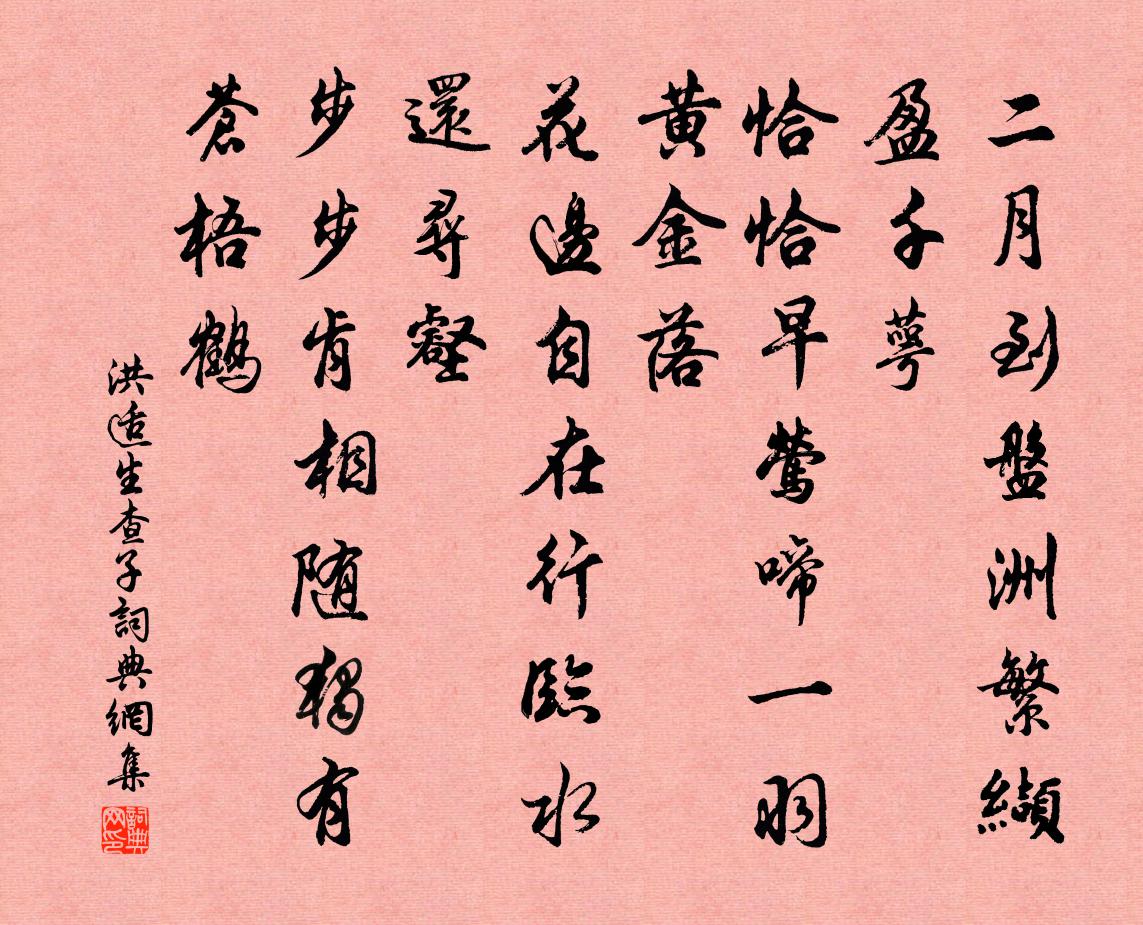 二月到盤洲繁纈
盈千萼
恰恰早鶯啼一羽
黃金落
花邊自在行臨水
還尋壑
步步肯相隨獨有
蒼梧鶴
洪适生查子詞典網集
詞典网印